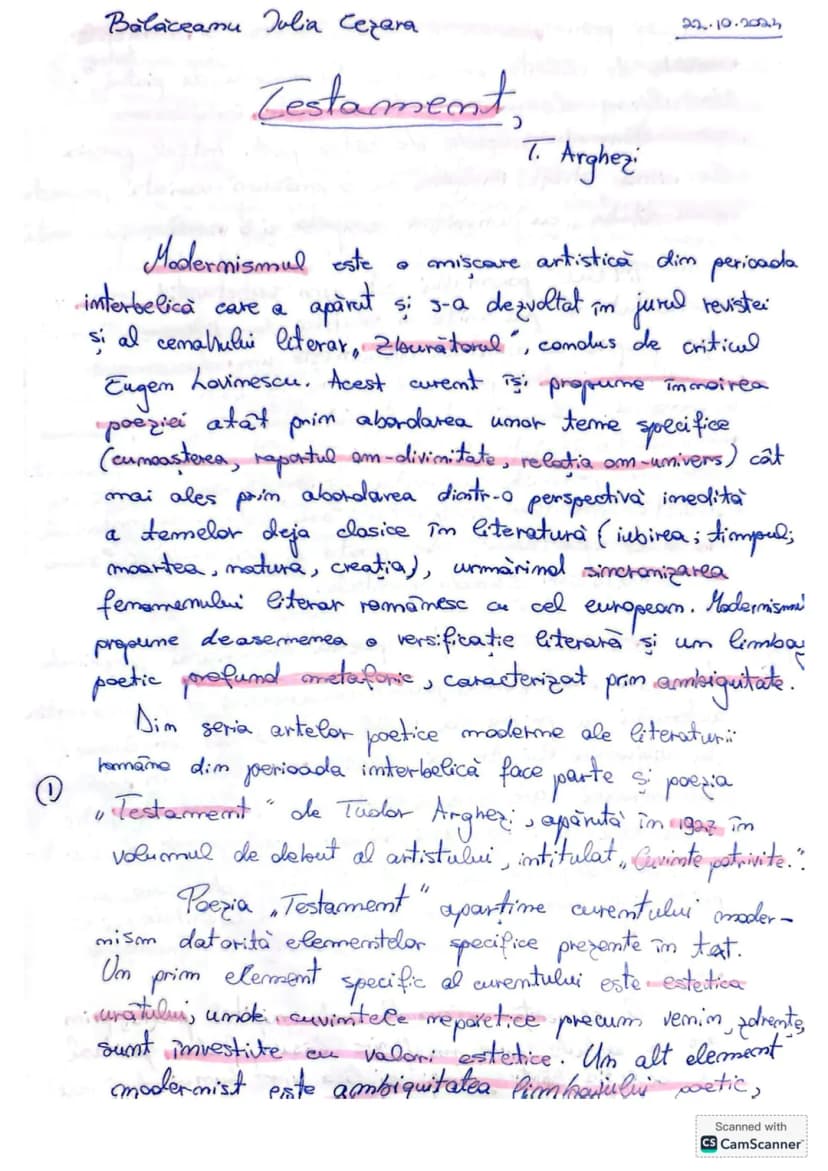 Bălăceanu Iulia Cezara 22.10.2024
Testament,
T. Arghezi
Modernismul este o mișcare artistică din perioada
interbelică care a apărut și s-a dezvoltat în jurul revistei
și al cenaclului literar „Zburătorul", condus de criticul
Eugen Lovinescu. Acest curent își propune înnoirea
poeziei atât prin abordarea unor teme specifice
(cunoașterea, raportul om-divinitate, relația om-univers) cât
mai ales prin abordarea dintr-o perspectivă inedită
a temelor deja clasice în literatură (iubirea; timpul;
moartea, natură, creația), urmărind sincronizarea
fenomenului literar românesc cu cel european. Modernismul
propune deasemenea o versificație literară și un limbaj
poetic profund metaforic, caracterizat prin ambiguitate.
Din seria artelor poetice moderne ale literaturii
române din perioada interbelică face parte și poezia
① „Testament" de Tudor Arghezi, apărută în 1927 în
volumul de debut al artistului, intitulat „Cuvinte potrivite."
Poezia „Testament" aparține curentului moder-
nism datorită elementelor specifice prezente în text.
Un prim element specific al curentului este estetica
urâtului, unde cuvintele nepoetice precum venin, zdrențe,
sunt investite cu valori estetice. Un alt element
modernist este ambiguitatea limbajului poetic,
Scanned with
CS CamScanner